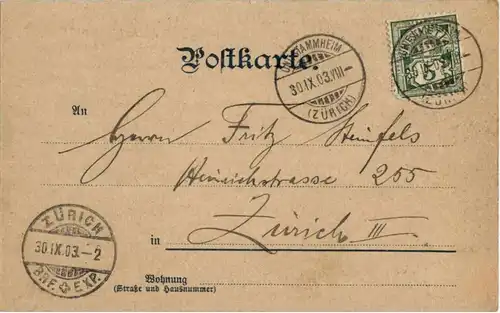 Postkarte.
STAMMHEIM
30.IX.03.VIII-
(ZÜRICH)
5
An
Herrn Fritz Steinfels
Heinrichstrasse 255
in Zürich III
ZÜRICH
30.IX.03.-2
BRF. EXP.
Wohnung
(Straße und Hausnummer)